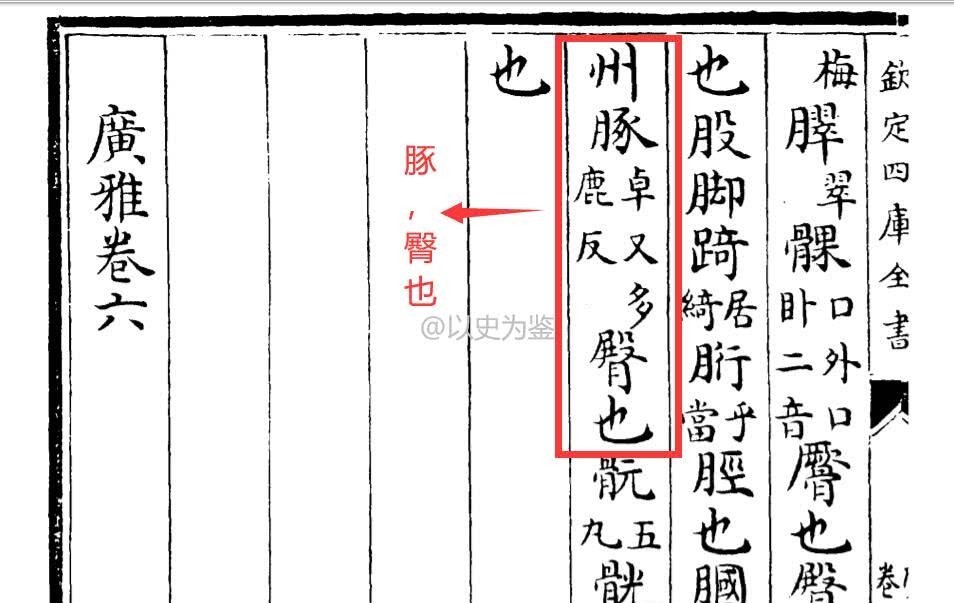 欽定四庫全書
梅臎翠髁口外口卧二音𦡀也臀
也股脚踦居綺胻乎當脛也膕
州豚卓又多鹿反臀也骯五丸骯
也
廣雅卷六
豚，臀也
@以史为鉴